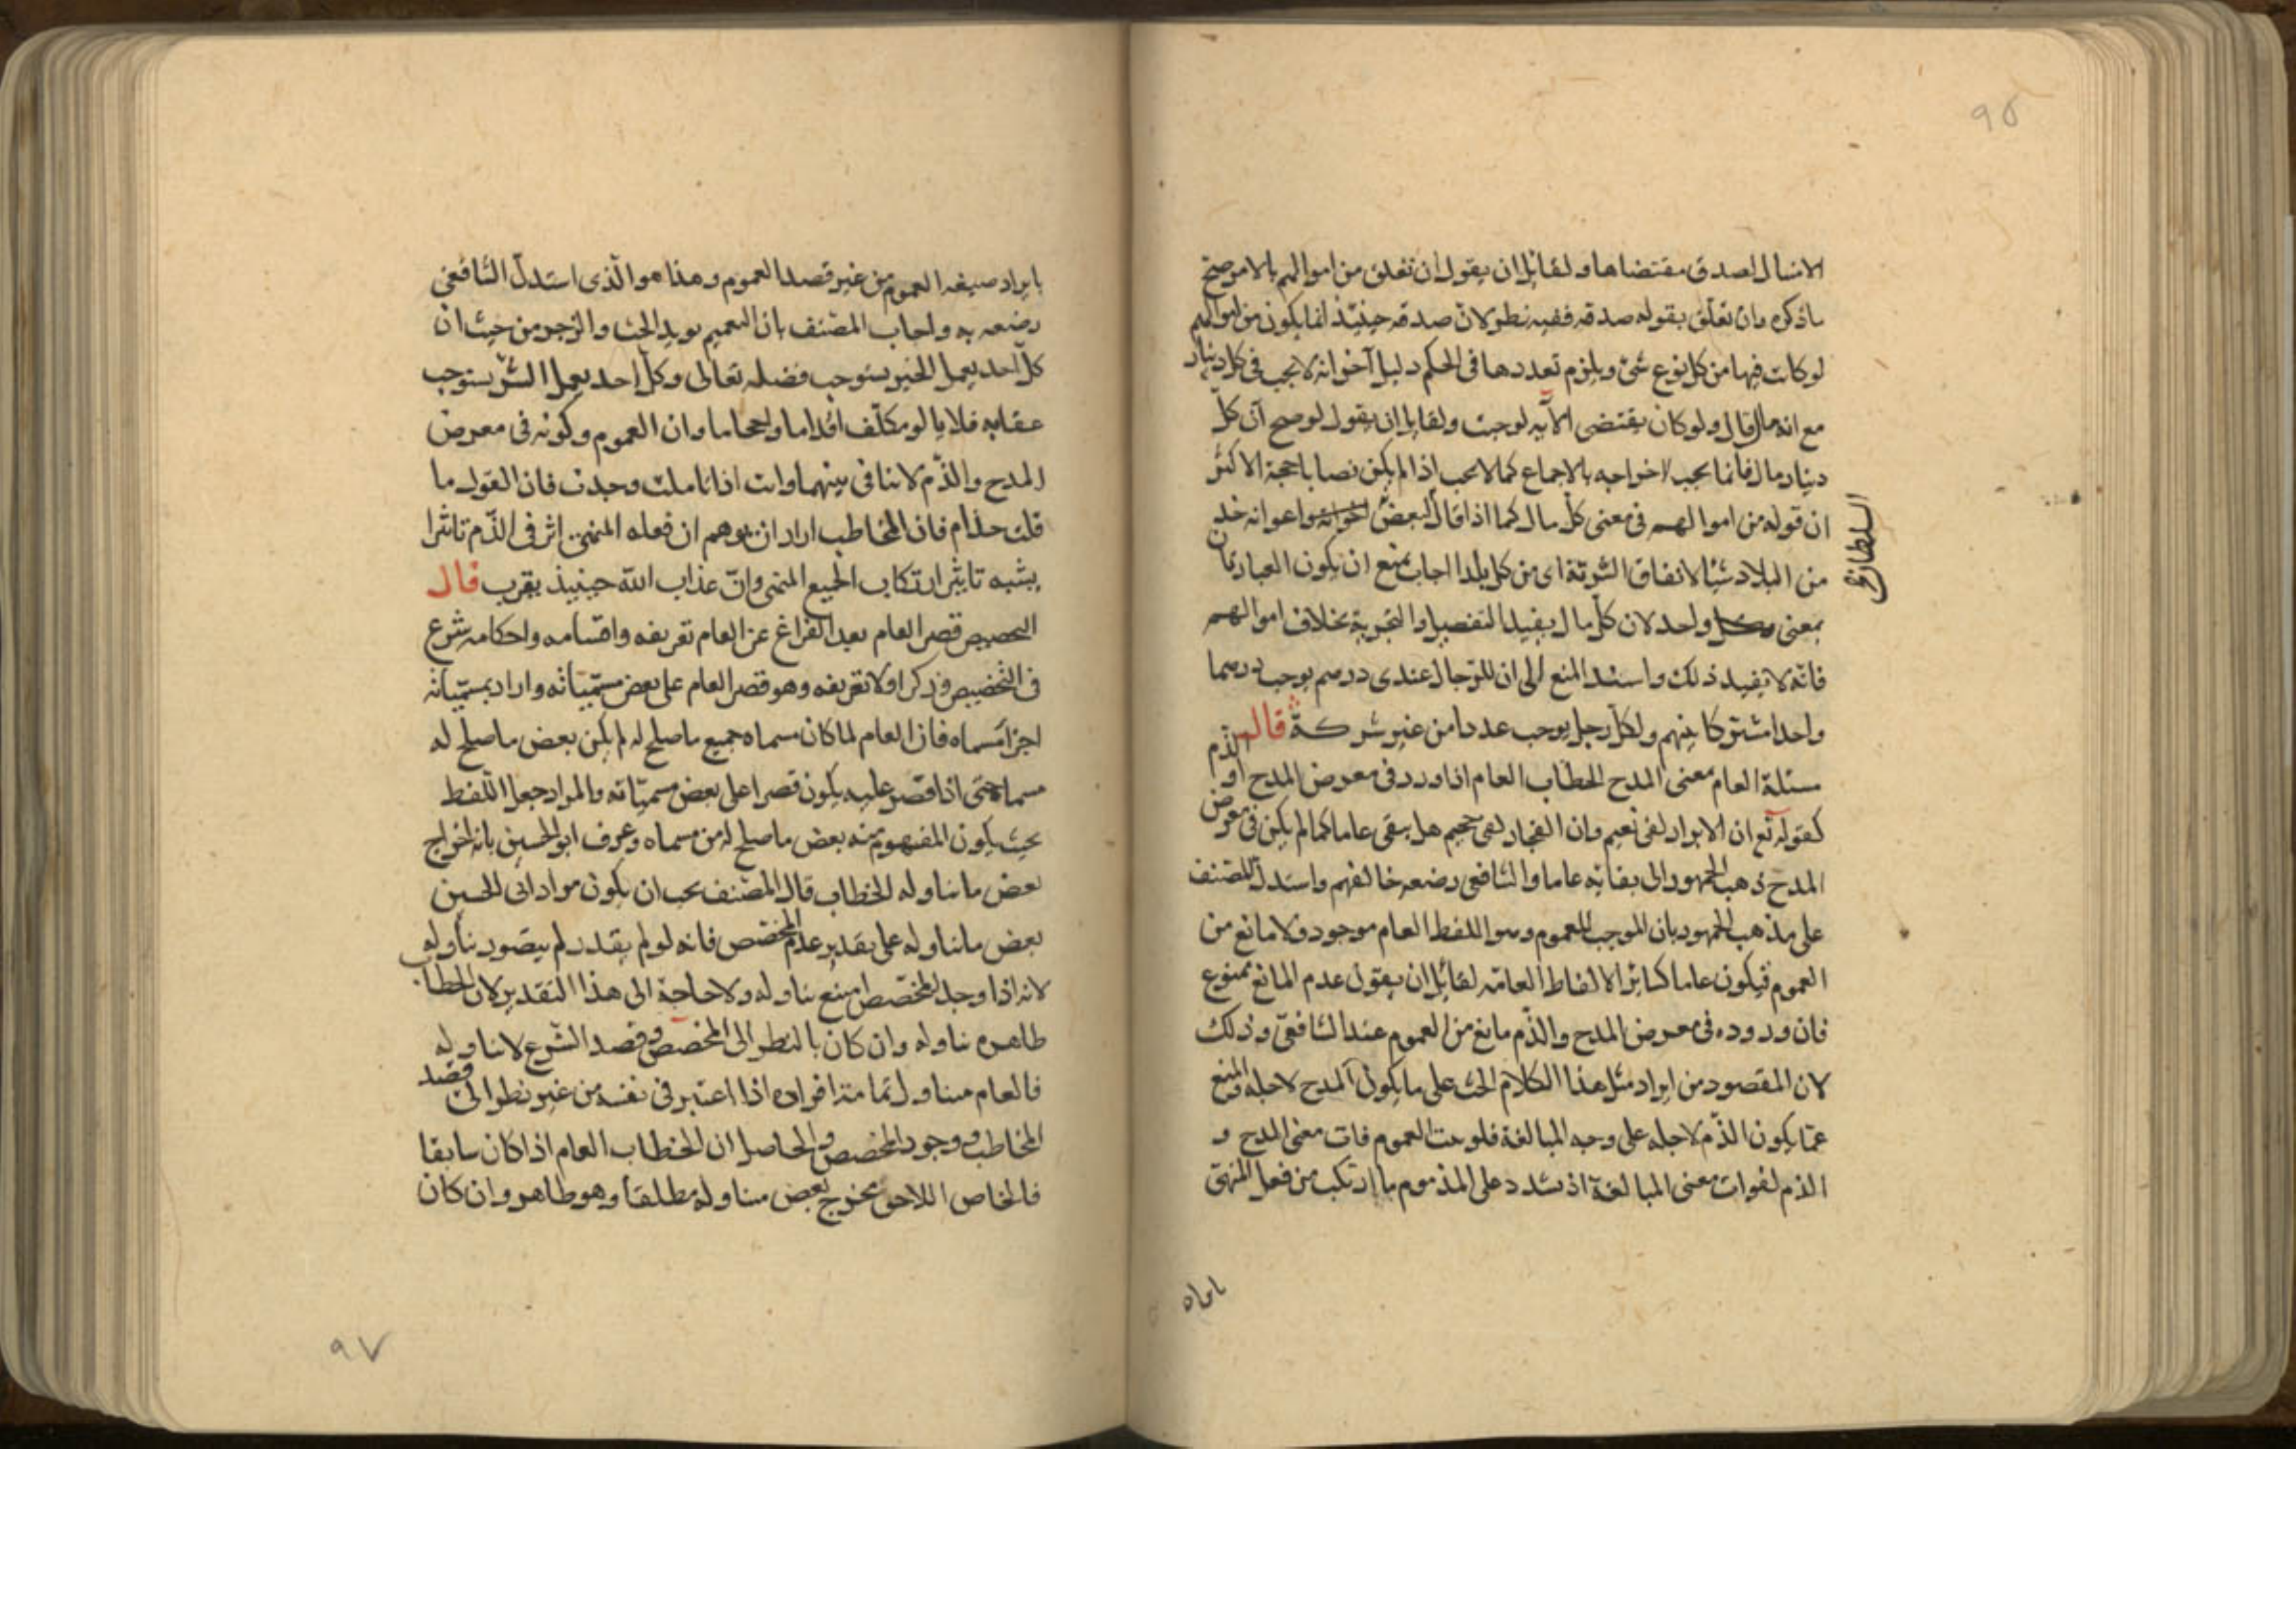 ٩٥
الامتثال لصدق مقتضاها ولقائل ان يقول ان تعلق من اموالهم بالامر صح
ماذكره وان تعلق بقوله صدقه ففيه نظر لان صدقه حينئذ انما يكون من اموالهم
لو كانت فيها من كل نوع شئ ويلزم تعددها فى الحكم دليل آخر انه لا يجب فى كل دينار
مع انه مال قال ولو كان يقتضى الآيه لوجبت ولقايل ان يقول لو صح ان كل
دينار مال فانما يجب اخراجه بالاجماع كما لا يجب اذا لم يكن نصابا حجة الاكثر
ان قوله من اموالهم فى معنى كل مال كما اذا قال لبعض اخوانه واعوانه خذ
السلطان
من البلاد شيئا لانفاق الشرتة اى من كل بلد اجاب بمنع ان يكون العبارتان
بمعنى واحد لان كل مال يفيد التفصيل والتجزية بخلاف اموالهم
فانه لا يفيد ذلك واسند المنع الى ان للرجال عندى درهم يوجب درهما
واحدا مشتركا بينهم ولكل رجل يوجب عددا من غير شركة قال
مسئلة العام معنى المدح الخطاب العام اذا ورد فى معرض المدح او الذم
كقوله تع ان الابرار لفى نعيم وان الفجار لفى جحيم هل يبقى عاما كما لم يكن فى معرض
المدح ذهب الجمهور الى بقائه عاما والشافعى رضعه خالفهم واستدل المصنف
على مذهب الجمهور بان الموجب للعموم وهو اللفظ العام موجود ولا مانع من
العموم فيكون عاما كسائر الالفاظ العامه لقائل ان يقول عدم المانع ممنوع
فان وروده فى معرض المدح والذم مانع من العموم عند الشافعى وذلك
لان المقصود من ايراد مثل هذا الكلام الحث على ما يكون المدح لاجله والمنع
عما يكون الذم لاجله على وجه المبالغة فلو عت العموم فات معنى المدح و
الذم لفوات معنى المبالغة اذ شدد على المذموم ما ارتكب من فعل المنهى
بايراد
بايراد صيغه العموم من غير قصد العموم وهذا هو الذى استدل الشافعى
رضعه به واجاب المصنف بان التعميم يويد الحث والزجر من حيث ان
كل احد يعمل الخير يستوجب فضله تعالى وكل احد يعمل الشر يستوجب
عقابه فلا يالو مكلف اقداما واحجاما وان العموم وكونه فى معرض
المدح والذم لا تنافى بينهما وانت اذا تاملت وجدت فان القول ما
قلت حذام فان المخاطب اراد ان يوهم ان فعله المنهى اثر فى الذم تاثيرا
يشبه تاثير ارتكاب الجميع المنهى وان عذاب الله حينيذ يقرب قال
التخصيص قصر العام بعد الفراغ عن العام تعريفه واقسامه واحكامه شرع
فى التخصيص وذكر اولا تعريفه وهو قصر العام على بعض مسمياته واراد بمسمياته
اجزا مسماه فان العام لما كان مسماه جميع ما صلح له لم يكن بعض ما صلح له
مسماه حتى اذا قصر عليه يكون قصرا على بعض مسمياته والمراد جعل اللفظ
بحيث يكون المفهوم منه بعض ما صلح له من مسماه وعرف ابو الحسين بانه اخراج
بعض ما تناوله الخطاب قال المصنف يجب ان يكون مراد ابى الحسين
بعض ما تناوله على تقدير عدم المخصص فانه لو لم يقدر لم يتصور تناوله
لانه اذا وجد المخصص امتنع تناوله ولا حاجة الى هذا التقدير لان الخطاب
ظاهره تناوله وان كان بالنظر الى المخصص وقصد الشرع لا تناوله
فالعام متناول تمامة افراده اذا اعتبر فى نفسه من غير نظر الى قصد
المخاطب ووجود المخصص والحاصل ان الخطاب العام اذا كان سابقا
فالخاص اللاحق مخرج بعض متناوله مطلقا وهو ظاهر وان كان
٩٧